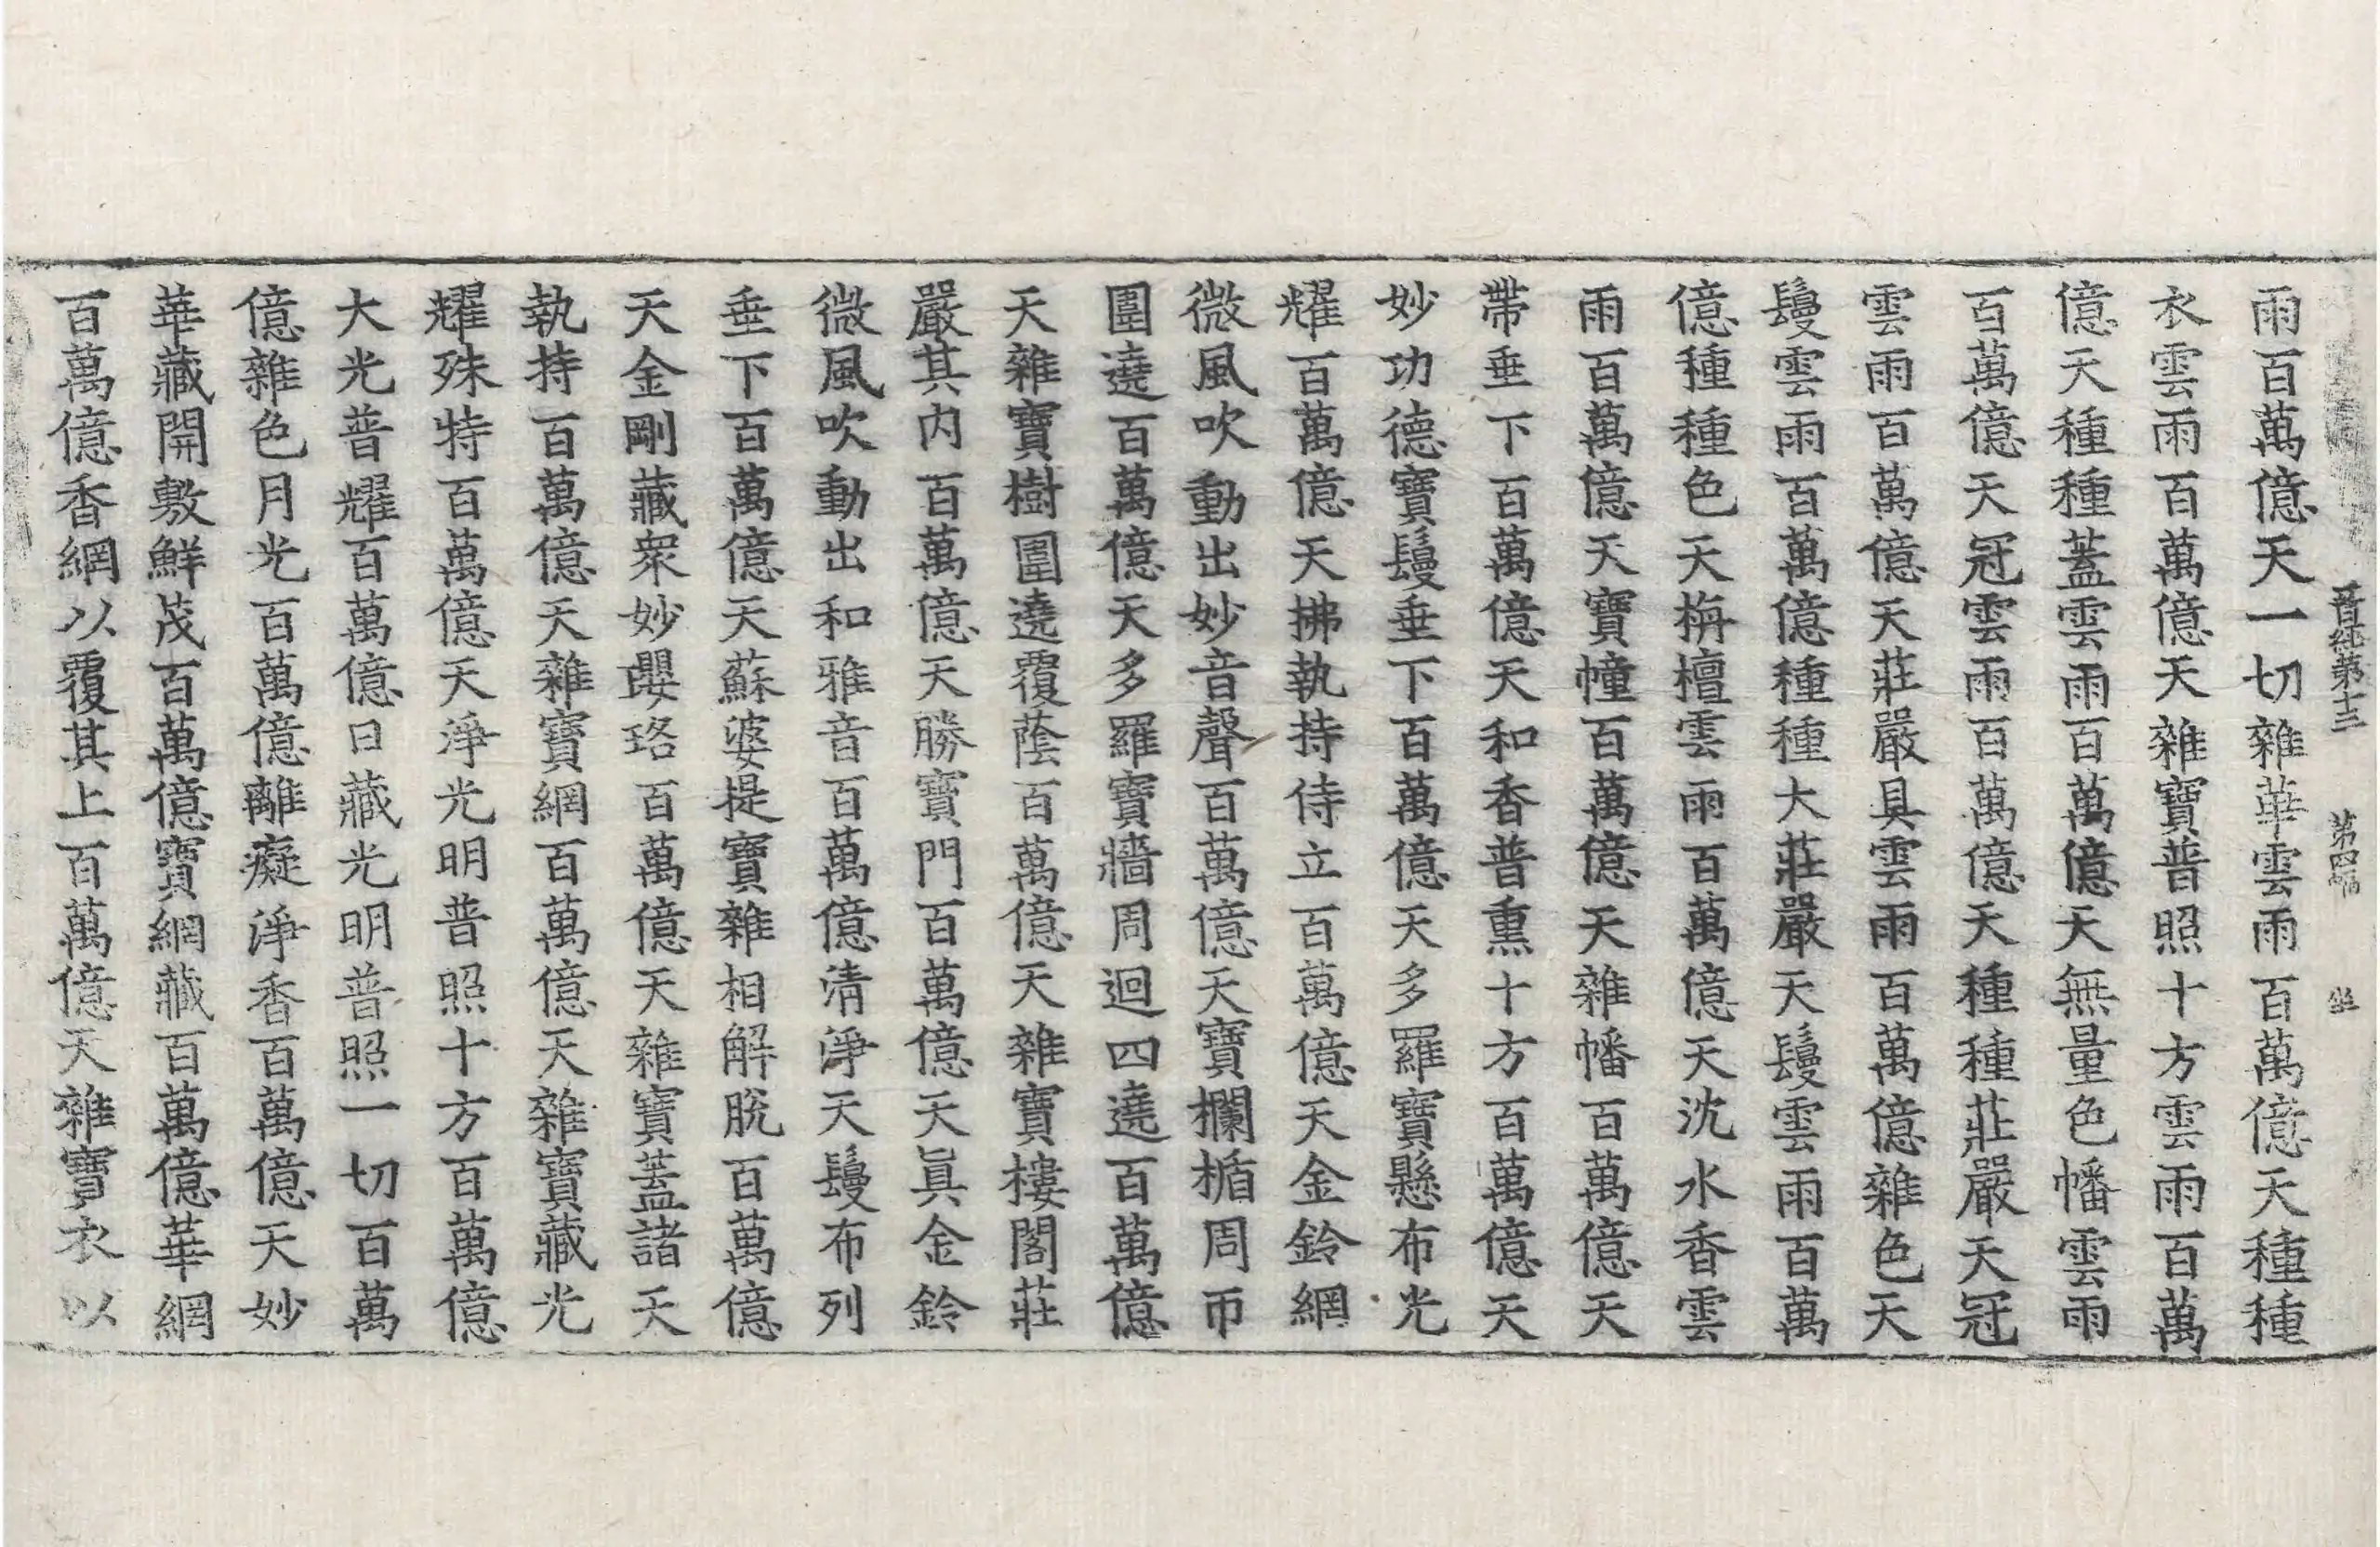 晉經第十三　第四幅　坐
雨百萬億天一切雜華雲雨百萬億天種種
衣雲雨百萬億天雜寶普照十方雲雨百萬
億天種種蓋雲雨百萬億天無量色幡雲雨
百萬億天冠雲雨百萬億天種種莊嚴天冠
雲雨百萬億天莊嚴具雲雨百萬億雜色天
鬘雲雨百萬億種種大莊嚴天鬘雲雨百萬
億種種色天栴檀雲雨百萬億天沈水香雲
雨百萬億天寶幢百萬億天雜幡百萬億天
帶垂下百萬億天和香普熏十方百萬億天
妙功德寶鬘垂下百萬億天多羅寶懸布光
耀百萬億天拂執持侍立百萬億天金鈴網
微風吹動出妙音聲百萬億天寶欄楯周帀
圍遶百萬億天多羅寶牆周迴四遶百萬億
天雜寶樹圍遶覆蔭百萬億天雜寶樓閣莊
嚴其內百萬億天勝寶門百萬億天眞金鈴
微風吹動出和雅音百萬億清淨天鬘布列
垂下百萬億天蘇婆提寶雜相解脫百萬億
天金剛藏衆妙瓔珞百萬億天雜寶蓋諸天
執持百萬億天雜寶網百萬億天雜寶藏光
耀殊特百萬億天淨光明普照十方百萬億
大光普耀百萬億日藏光明普照一切百萬
億雜色月光百萬億離癡淨香百萬億天妙
華藏開敷鮮茂百萬億寶網藏百萬億華網
百萬億香網以覆其上百萬億天雜寶衣以